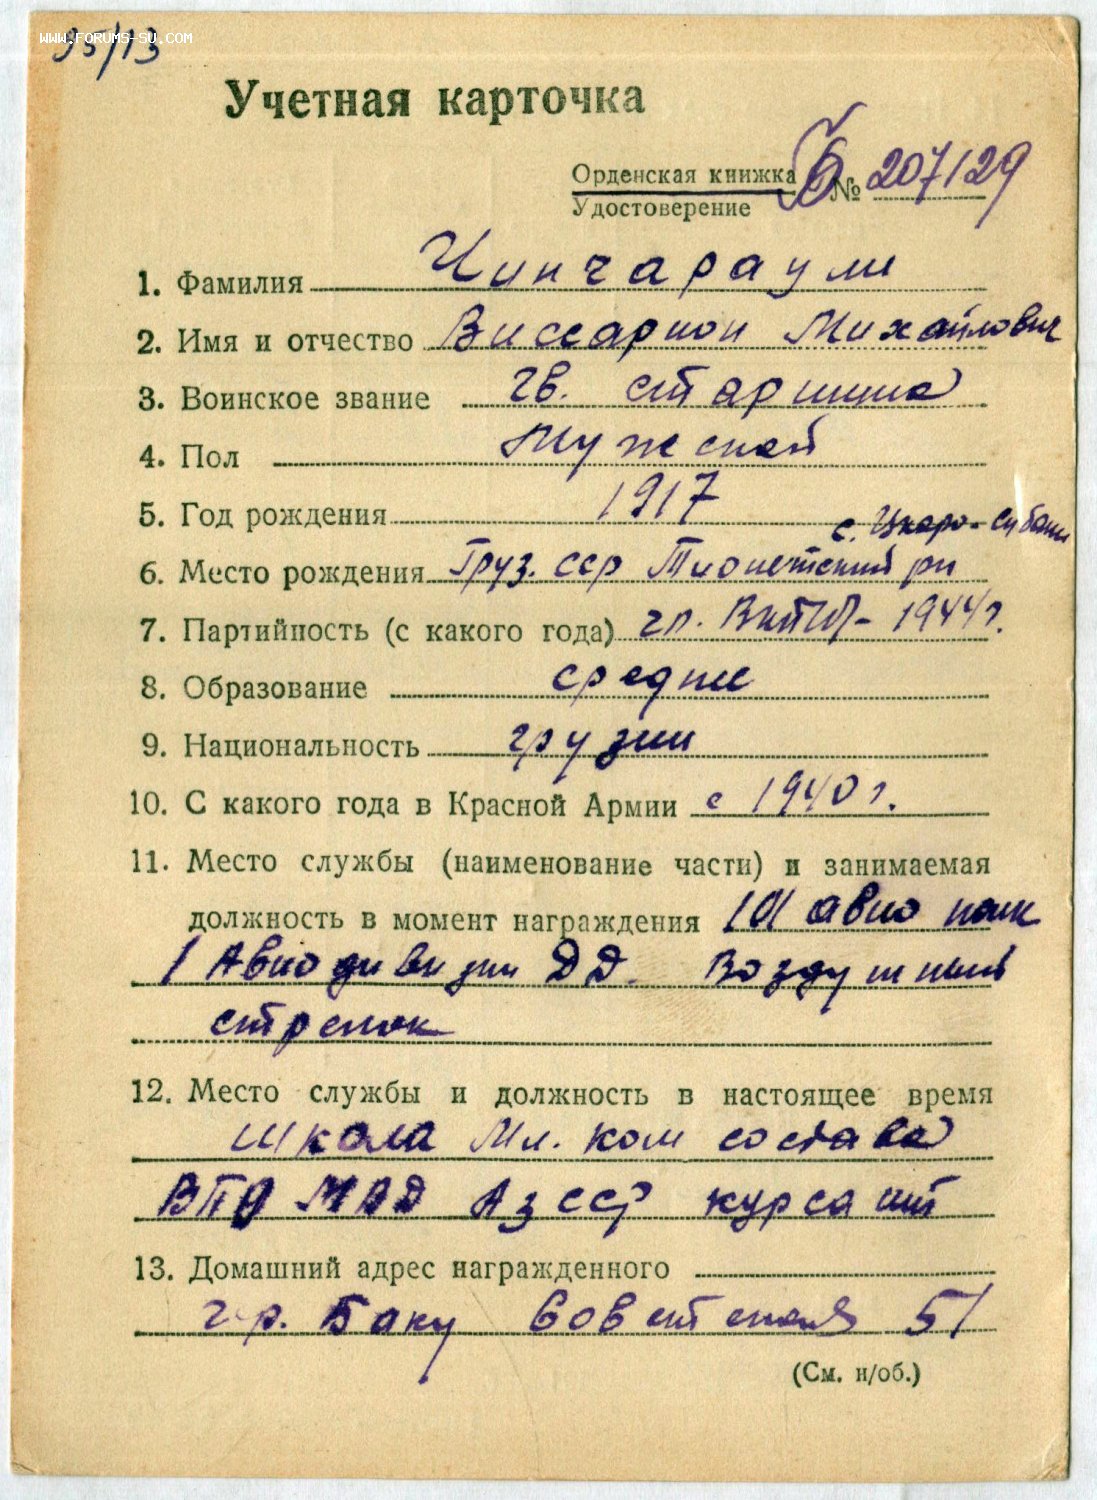 www.forums-su.com
95/13
Учетная карточка
Орденская книжка Б № 207129
Удостоверение
1. Фамилия Чинчараули
2. Имя и отчество Виссарион Михайлович
3. Воинское звание гв. старшина
4. Пол Мужской
5. Год рождения 1917
с. Цкаро-
6. Место рождения Груз. сср Тионетский рн
7. Партийность (с какого года) чл. ВКП(б) - 1944 г.
8. Образование средне
9. Национальность грузин
10. С какого года в Красной Армии с 1940 г.
11. Место службы (наименование части) и занимаемая
должность в момент награждения 101 авио полк
1 Авиодивизии ДД. Воздушный
стрелок
12. Место службы и должность в настоящее время
школа Мл. ком состава
ВПО МВД АзССР курсант
13. Домашний адрес награжденного
гор. Баку Советская 51
(См. н/об.)